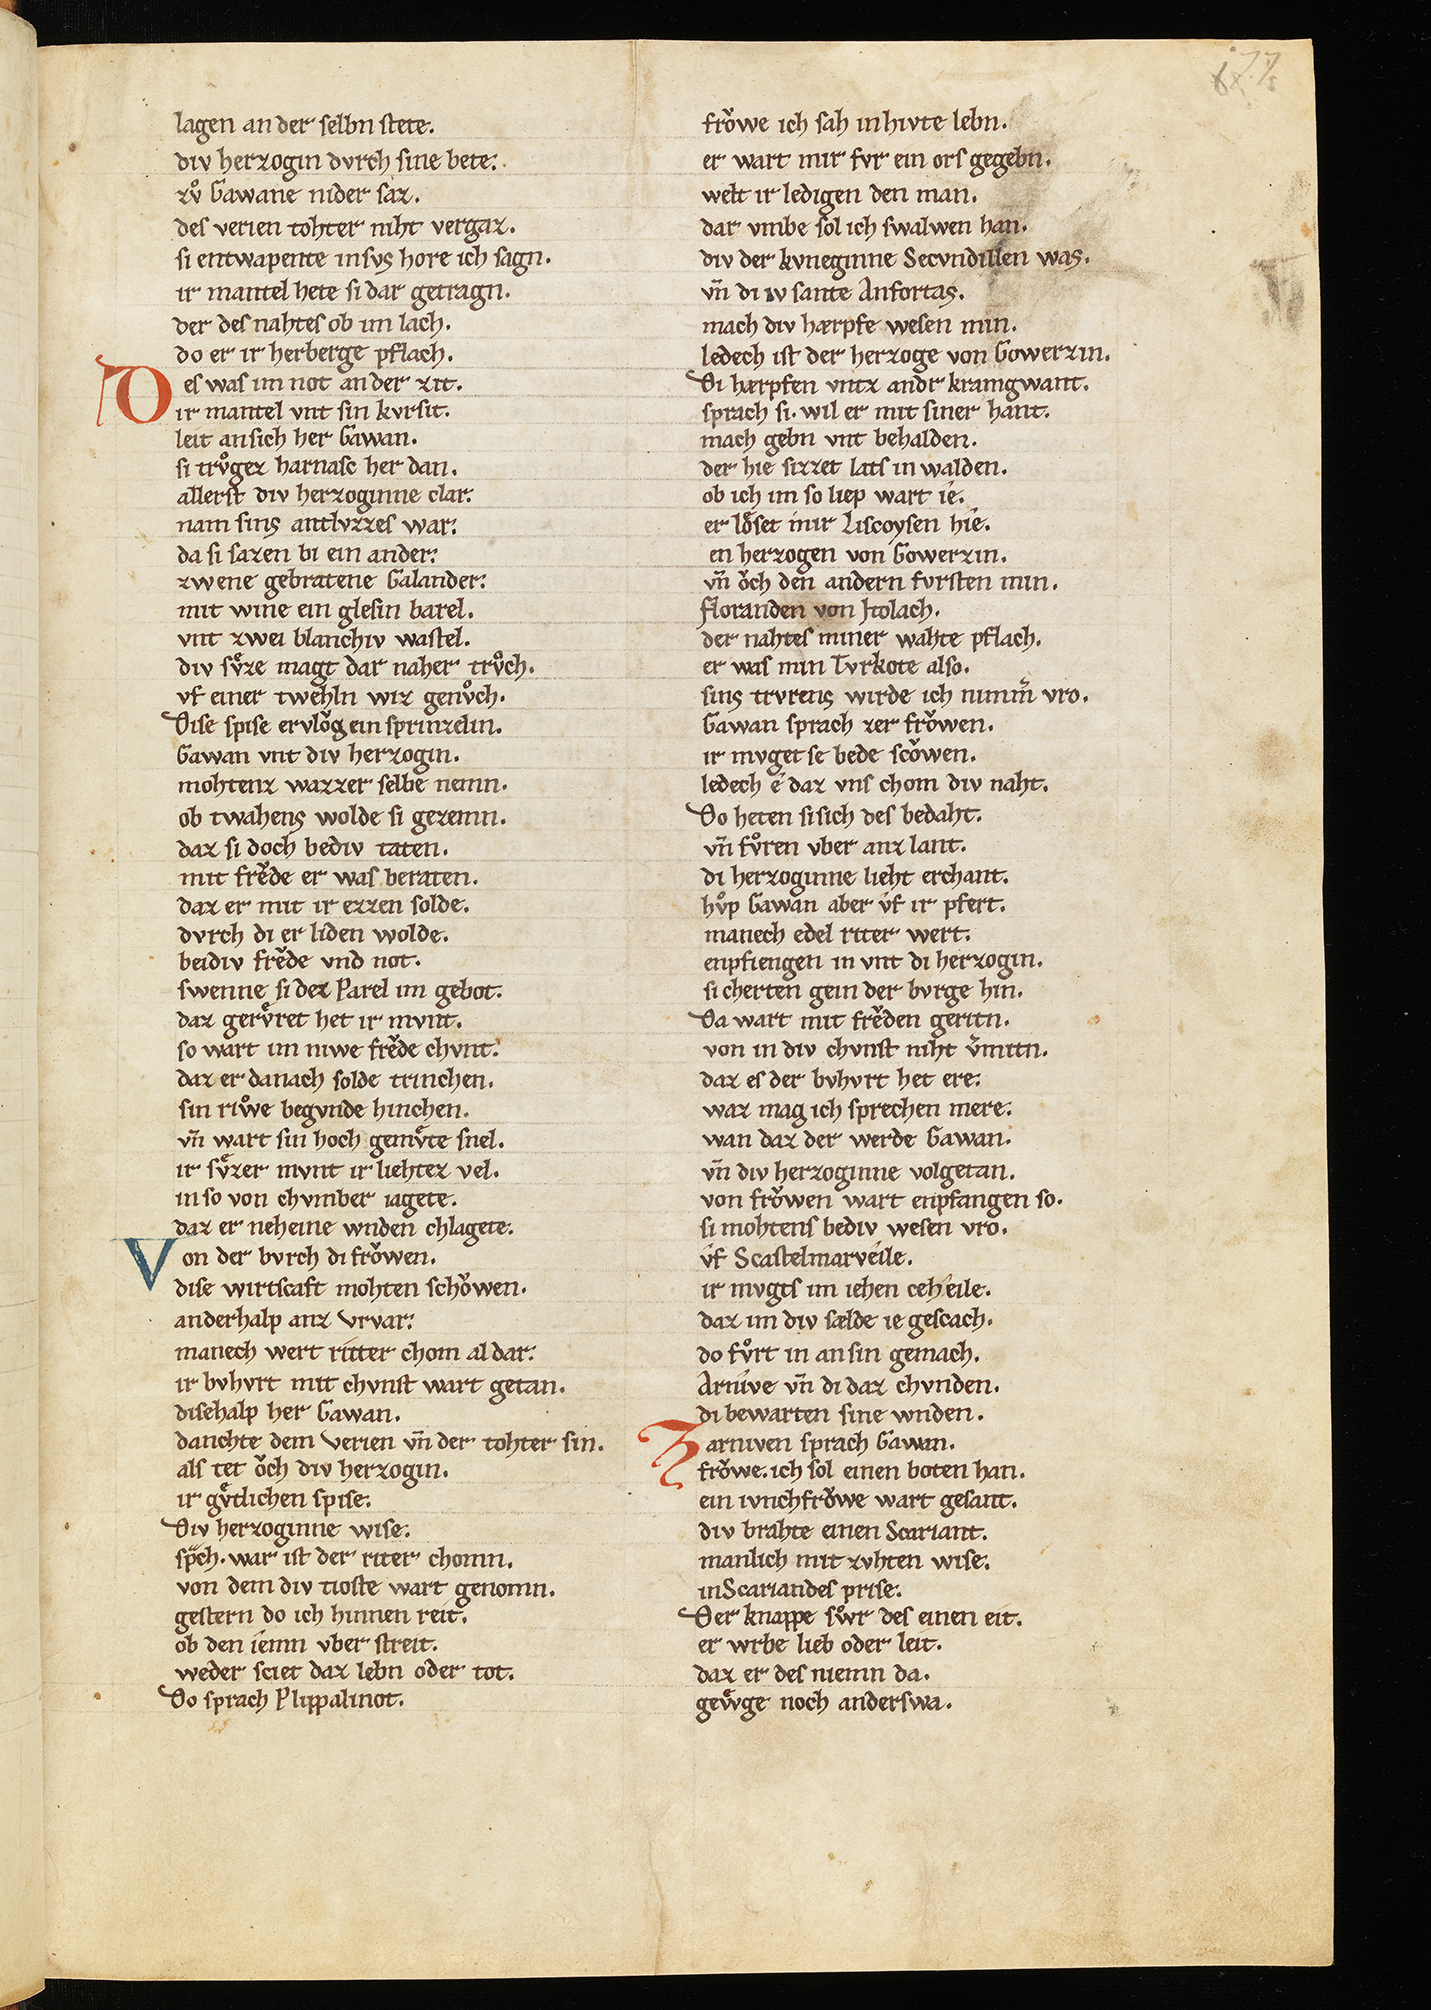 177
lagen an der selbn stete.
div herzogin dvrch sine bete.
zvͦ Gawane nider saz.
des verien tohter niht vergaz.
si entwapente in svs hore ich sagn.
ir mantel hete si dar getragn.
der des nahtes ob im lach.
do er ir herberge pflach.
Des was im not an der zit.
ir mantel vnt sin kvrsit.
leit an sich her Gawan.
si trvͦgez harnasc her dan.
allerst div herzoginne clar.
nam sins antlvzzes war.
da si sazen bi ein ander.
zwene gebratene Galander.
mit wine ein glesin barel.
vnt zwei blanchiv wastel.
div svͤze magt dar naher trvͦch.
vf einer twehln wiz genvͦch.
Dise spise ervloͮg ein sprinzelin.
Gawan vnt div herzogin.
mohtenz wazzer selbe nemn.
ob twahens wolde si gezemn.
daz si doch bediv taten.
mit freͮde er was beraten.
daz er mit ir ezzen solde.
dvrch di er liden wolde.
beidiv freͮde vnd not.
swenne si dez Parel im gebot.
daz gervͤret het ir mvnt.
so wart im niwe freͮde chvnt.
daz er danach solde trinchen.
sin riwͦe begvnde hinchen.
vn̄ wart sin hoch gemvͤte snel.
ir svͤzer mvnt ir liehtez vel.
in so von chvmber iagete.
daz er neheine wnden chlagete.
Von der bvrch di froͮwen.
dise wirtscaft mohten schoͮwen.
anderhalp anz vrvar.
manech wert ritter chom al dar.
ir bvhvrt mit chvnst wart getan.
disehalp her Gawan.
danchte dem verien vn̄ der tohter sin.
als tet oͮch div herzogin.
ir gvͤtlichen spise.
Div herzoginne wise.
spͣch. war ist der riter chomn.
von dem div tioste wart genomn.
gestern do ich hinnen reit.
ob den iemn vber streit.
weder sciet daz lebn oder tot.
Do sprach Plippalinot.
froͮwe ich sah in hivte lebn.
er wart mir fvr ein ors gegebn.
welt ir ledigen den man.
dar vmbe sol ich swalwen han.
div der kvneginne Secvndillen was.
vn̄ di iv sante Anfortas.
mach div hærpfe wesen min.
ledech ist der herzoge von Gowerzin.
Di hærpfen vntz andr kramgwant.
sprach si. wil er mit siner hant.
mach gebn vnt behalden.
der hie sizzet lats in walden.
ob ich im so liep wart ie.
er loͤset mir Liscoysen hie.
en herzogen von Gowerzin.
vn̄ oͮch den andern fvrsten min.
floranden von Jtolach.
der nahtes miner wahte pflach.
er was min Tvrkote also.
sins trvrens wirde ich nimm̄ vro.
Gawan sprach zer froͮwen.
ir mvget se bede scoͮwen.
ledech e daz vns chom div naht.
Do heten si sich des bedaht.
vn̄ fvͦren vber anz lant.
di herzoginne lieht erchant.
hvͦp Gawan aber vf ir pfert.
manech edel riter wert.
enpfiengen in vnt di herzogin.
si cherten gein der bvrge hin.
Da wart mit freͮden geritn.
von in div chvnst niht v̄mitn.
daz es der bvhvrt het ere.
waz mag ich sprechen mere.
wan daz der werde Gawan.
vn̄ div herzoginne volgetan.
von froͮwen wart enpfangen so.
si mohtens bediv wesen vro.
vf Scastelmarveile.
ir mvgts im iehen ceheile.
daz im div sælde ie gescach.
do fvͦrt in an sin gemach.
Arnive vn̄ di daz chvnden.
di bewarten sine wnden.
Zarniven sprach Gawan.
froͮwe. ich sol einen boten han.
ein ivnchfroͮwe wart gesant.
div brahte einen Scariant.
manlich mit zvhten wise.
in Scariandes prise.
Der knappe swͦr des einen eit.
er wrbe lieb oder leit.
daz er des niemn da.
gewͤge noch anderswa.